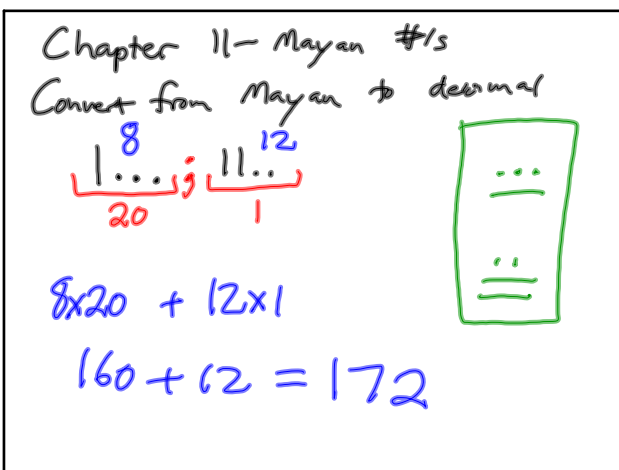 Chapter 11- Mayan #'s
Convert from Mayan to decimal
8 12
|... ; ||..
20 1
8x20 + 12x1
160 + 12 = 172